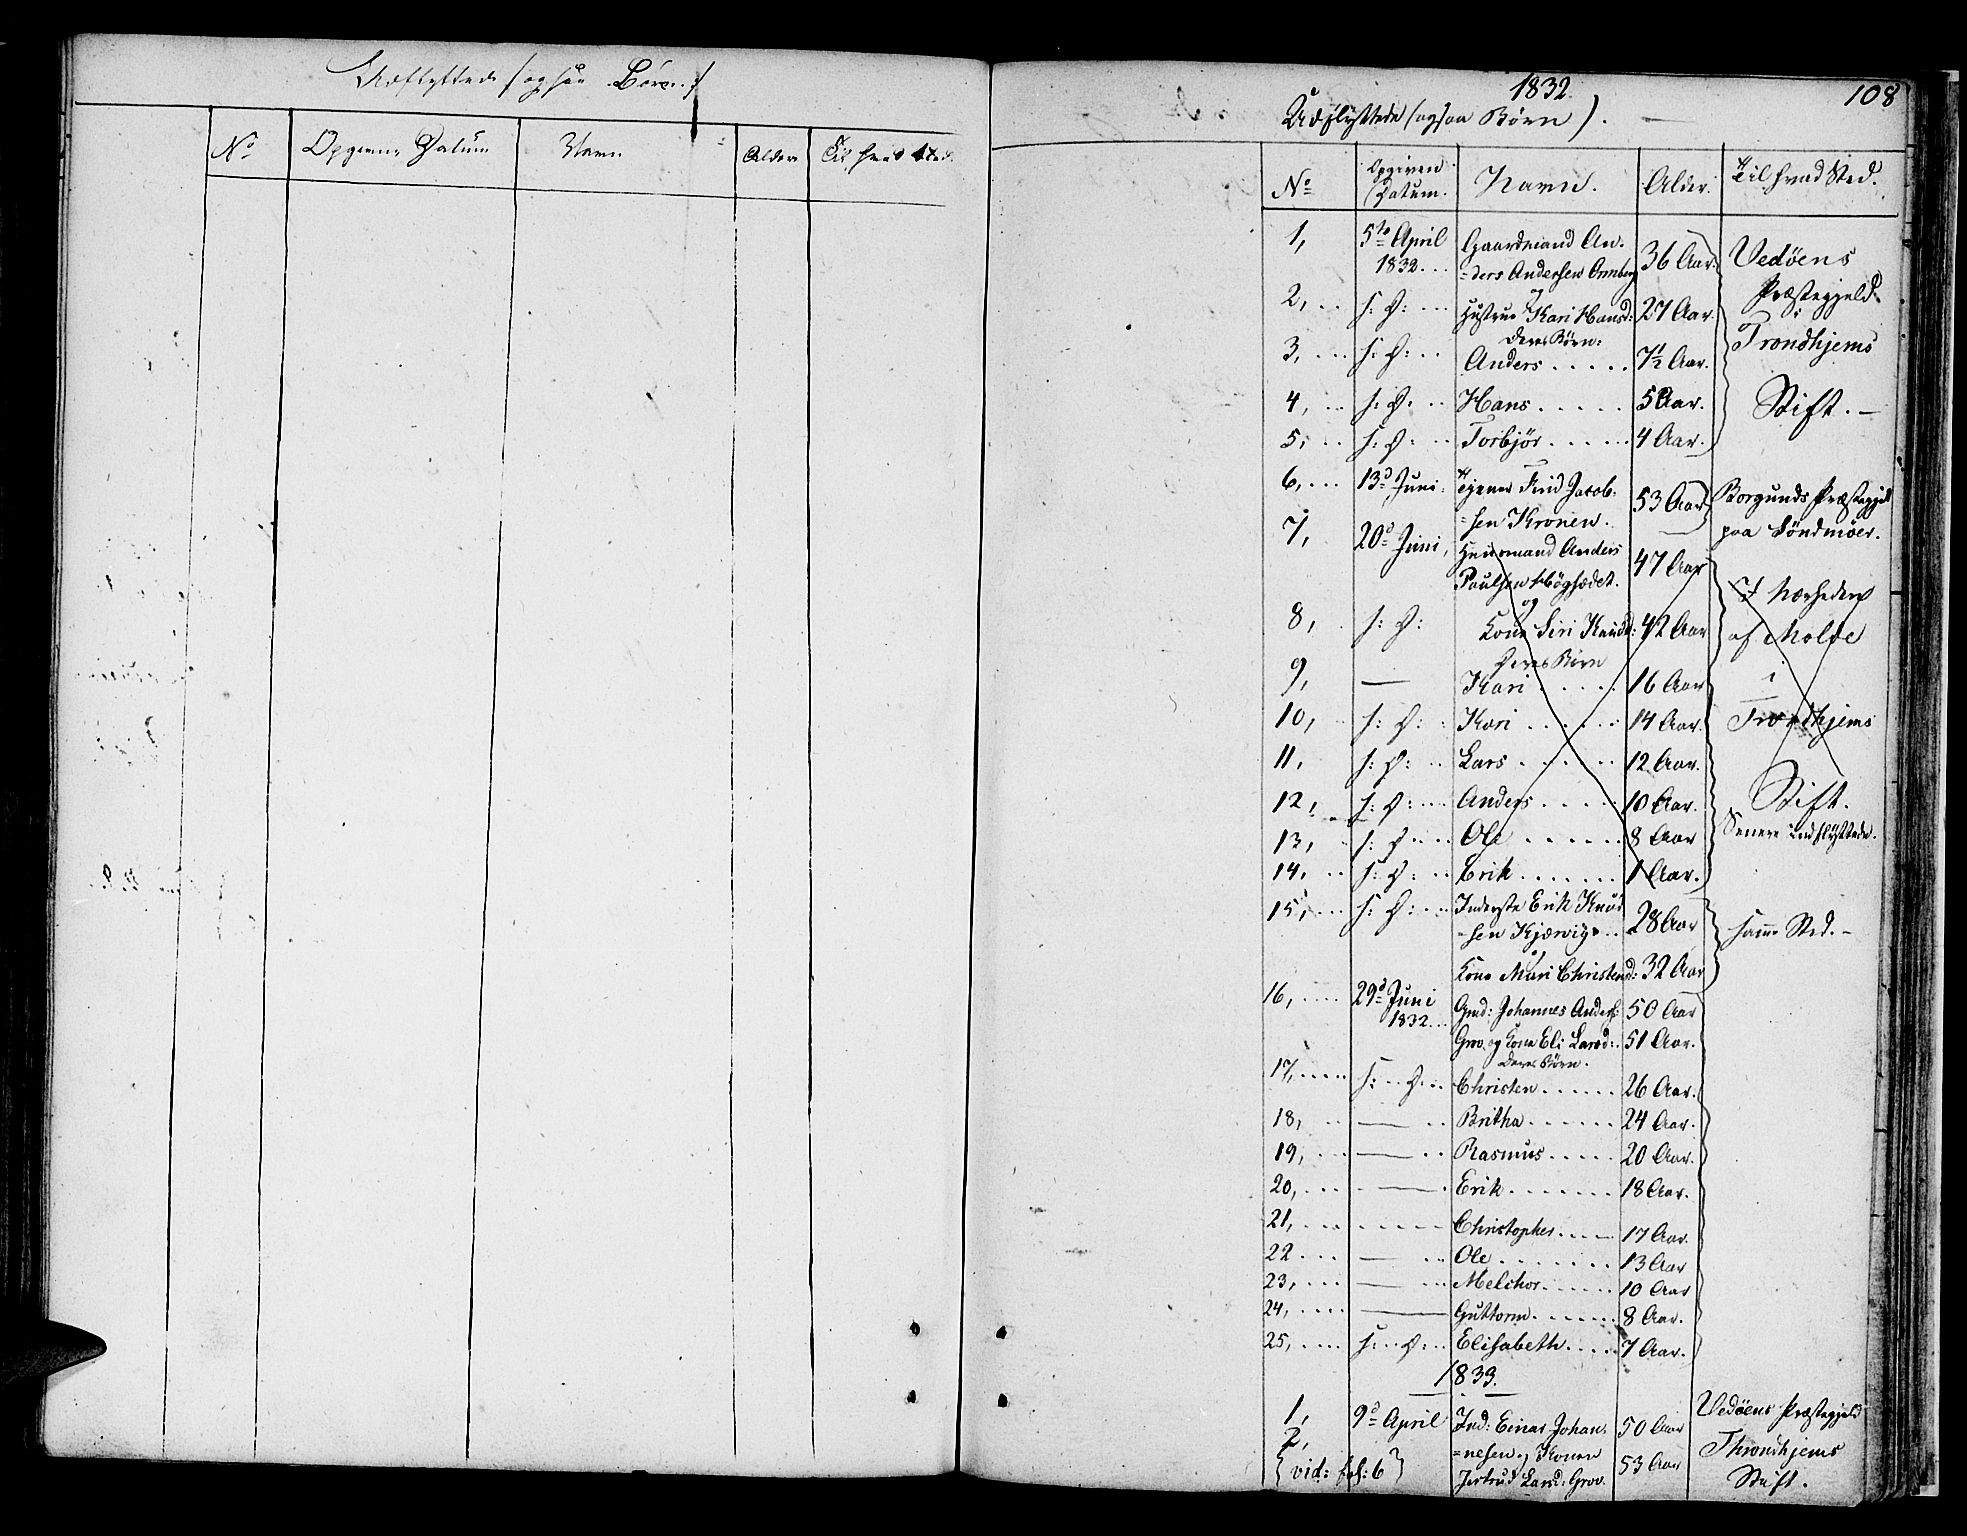 Udflyttede (ogsaa Børn.)
No Opgivne Datum Navn Alder Til hvad Sted.
108
1832
Udflyttede (ogsaa Børn).
No Opgiven Datum. Navn. Alder. Til hvad Sted.
1, 5te April 1832... Gaardmand An-
=ders Andersen 36 Aar. Vedøens
Præstegjeld
2, ... s: D: ... Hustrue Kari Hansd: 27 Aar. i
Deres Børn: Trondhjems
3, ... s: D: .. Anders ..... 7½ Aar.
4, .. s: D: .. Hans ..... 5 Aar. Stift. -
5, ... s: D: .. Torbjør ..... 4 Aar.
6, ... 13d Juni Jacob-
=sen Kronen. 53 Aar Borgunds Præstegjeld
paa Søndmøer.
7, 20d Juni, Huusmand Anders
Poulsen Høgsædet. 47 Aar I Nærheden
og
8, s: D: Kone Siri Knudsd: 42 Aar af Molde
Deres Børn
9, — Kari ..... 16 Aar i
10, s: D: Kari ..... 14 Aar. Trondhjems
11, s: D: .. Lars ..... 12 Aar.
12, s: D: .... Anders ..... 10 Aar. Stift.
13, s: D: .... Ole ...... 8 Aar Senere indflyttede.
14, .. s: D: .. Erik ....... 1 Aar.
15, ... s: D: ... Inderste Erik Knud
=sen Kjørvig .. 28 Aar samme Sted. -
Kone Mari Christensd: 32 Aar
16, ..... 29d Juni 1832... Gmd: Johannes Anders: 50 Aar
Grov og Kone Eli Larsd: 51 Aar.
Deres Børn.
17, ..... s: .. D: .. Christen ...... 26 Aar.
18, — .. Britha ...... 24 Aar.
19, ... — .. Rasmus ..... 20 Aar.
20, .... — . Erik ....... 18 Aar.
21, .... ..... Christopher .... 17 Aar.
22 .... — .. Ole ........ 13 Aar
23, .... — ... Melchor ...... 10 Aar
24, ..... — Guttorm ....... 8 Aar.
25, ..... s: .. D: .. Elisabeth ..... 7 Aar.
1833.
1, 9d April Ind: Einar Johan- 50 Aar Vedøens Præstegjeld
2, =nesen og Konen Throndhjems
{vid: fol: 6} Jertrud Larsd: Grov. 53 Aar Stift.